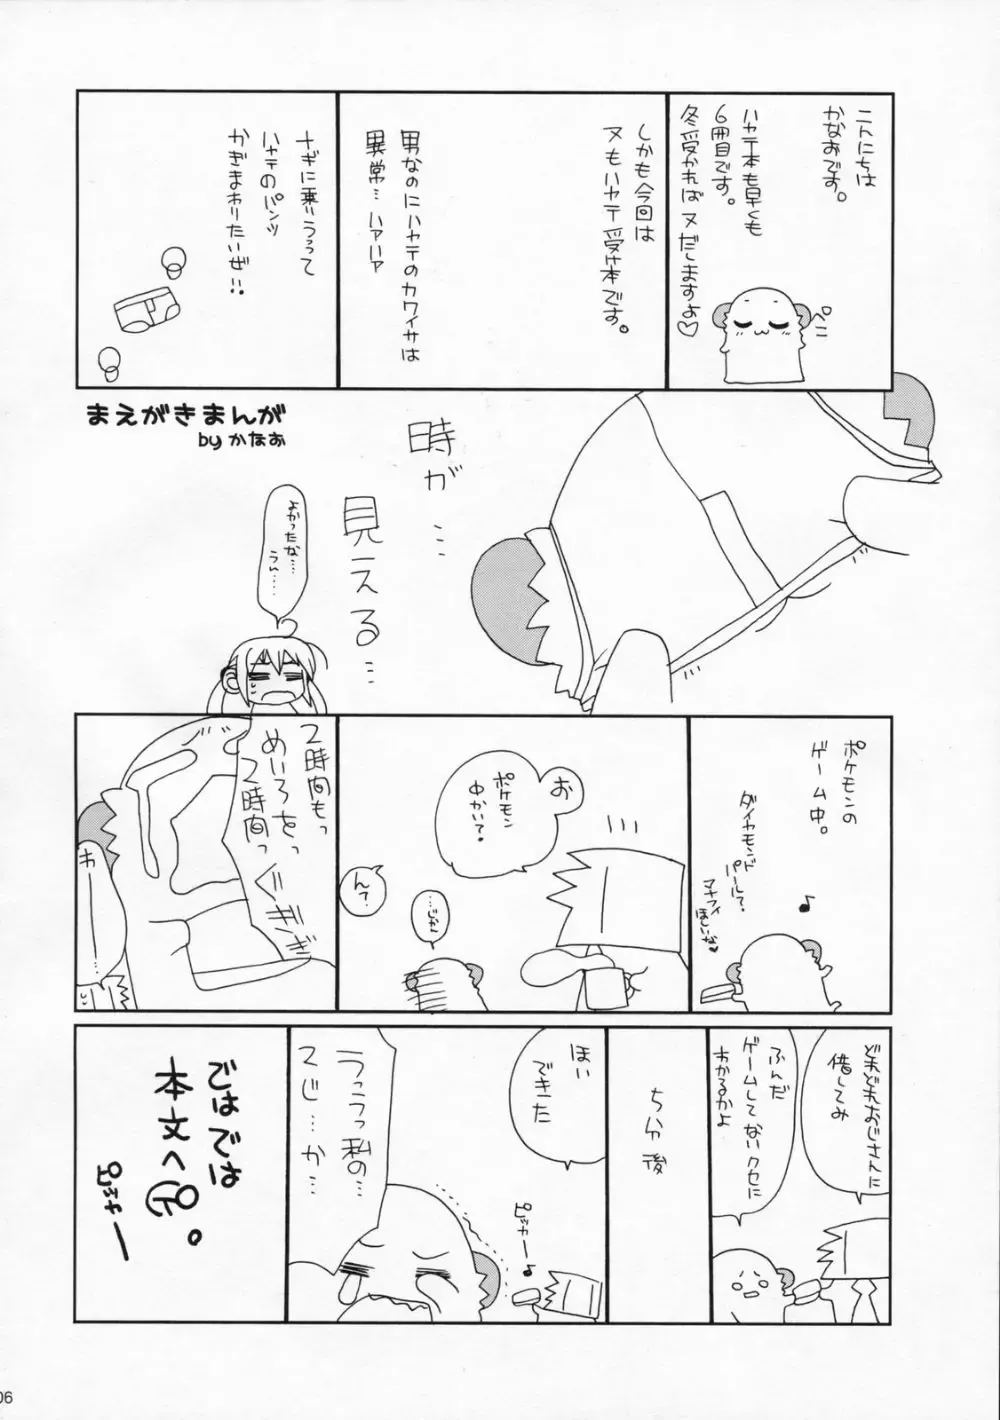 こんにちは
かなおです。
ハヤテ本も早くも
6冊目です。
冬受かればヌだしますよ♡
ぺこ
しかも今回は
ヌもハヤテ受け本です。
男なのにハヤテのカワイサは
異常…ハァハァ
ナギに乗りうつって
ハヤテのパンツ
かぎまわりたいぜ!!
まえがきまんが
by かなお
時が…
見える…
よかったな…
うん……
ポケモンの
ゲーム中。
ダイヤモンド
パールで。
マナフィ
ほしいな♥
♪
お
ポケモン
中かい?
…じかん
ん?
2時間もっ
めいろをっ
2時間っ
ぐぎぎぎ
わーっ…
どれどれおじさんに
借してみ
ふんだ
ゲームしてないクセに
わかるかよ
5分後
ほい
できた
ピッカー♪
うっうっ私の…
2じ…か…
ではでは
本文へGO。
ピッカー
06